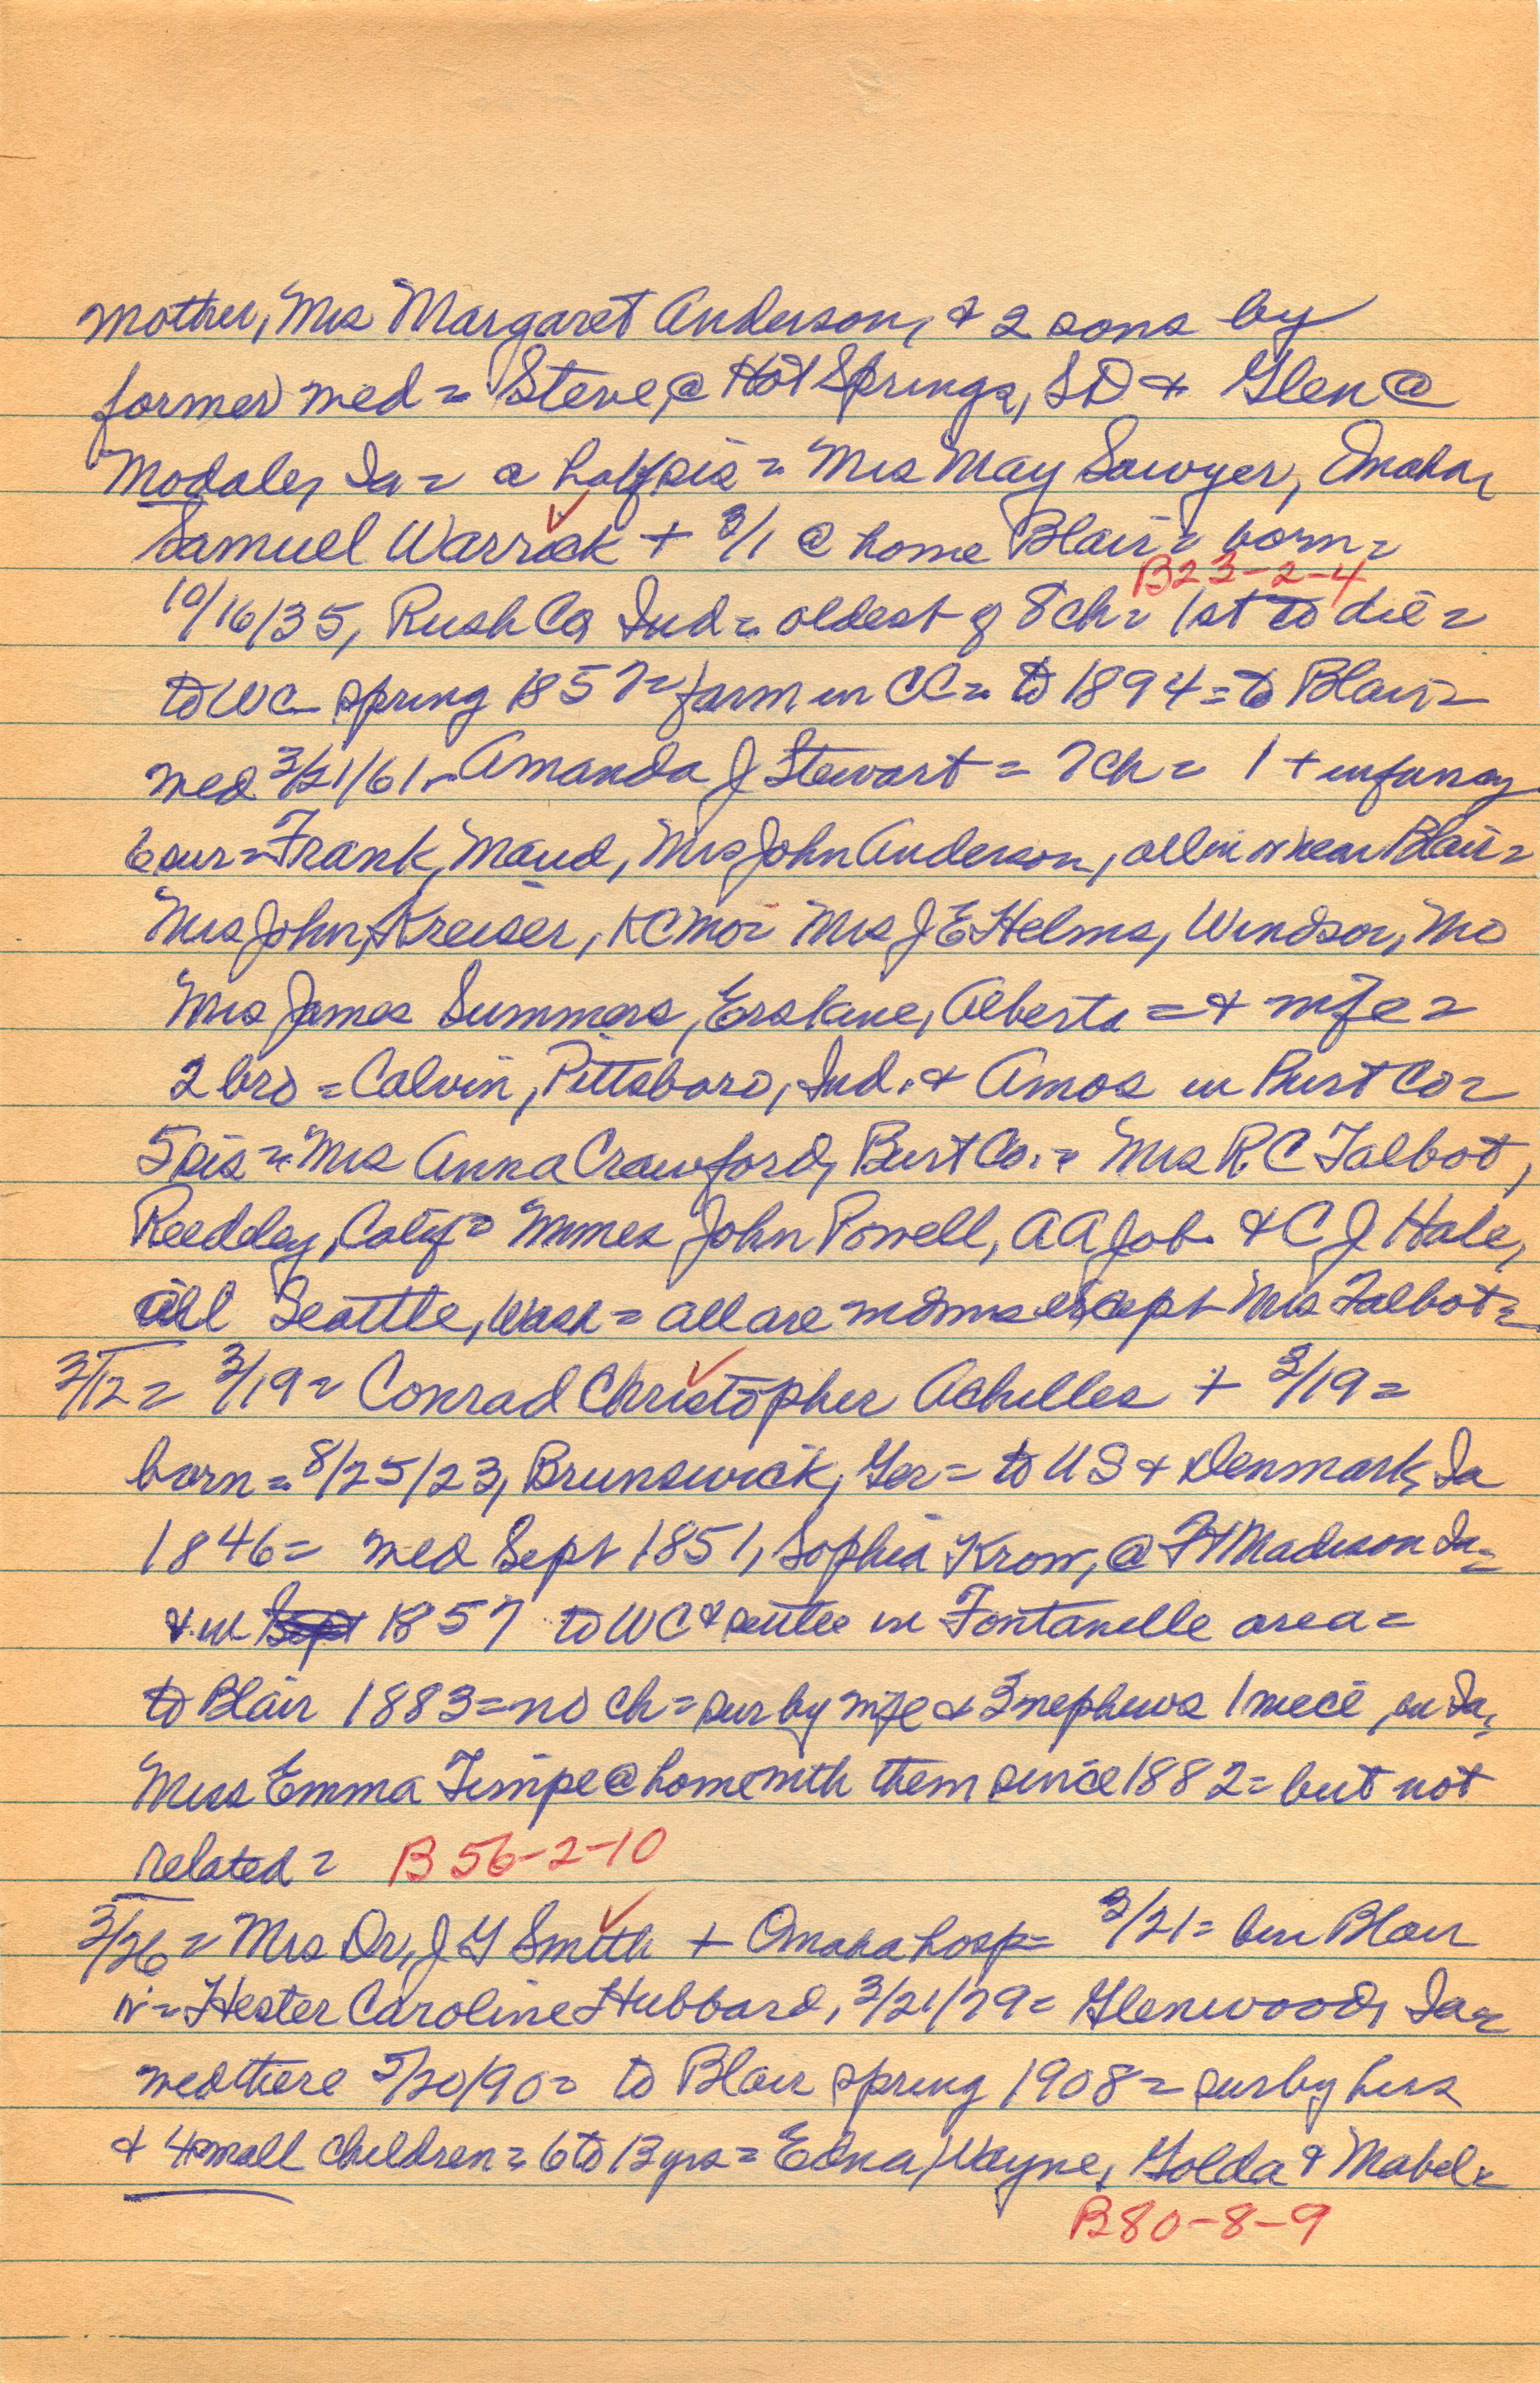 mother, Mrs Margaret Anderson, & 2 sons by
former med = Steve @ Hot Springs, SD & Glen @
Modale, Ia = a half sis = Mrs May Sawyer, Omaha,
Samuel Warrick + 3/1 @ home Blair = born =
B23-2-4
10/16/35, Rush Co Ind = oldest of 8 ch = 1st to die =
to WC spring 1857 = farm in CC = to 1894 = to Blair =
med 3/21/61 - Amanda J Stewart = 7 ch = 1 + infancy
6 sur = Frank, Maud, Mrs John Anderson, all in or near Blair =
Mrs John Kreiser, KC Mo = Mrs J E Helms, Windsor, Mo
Mrs James Summers, Erskine, Alberta = & wife =
2 bro = Calvin, Pittsboro, Ind. & Amos in Burt Co =
5 sis = Mrs Anna Crawford, Burt Co. = Mrs R C Talbot,
Reedley, Calif = Mmes John Powell, A A Job & C J Hale,
all Seattle, Wash = all are widows except Mrs Talbot =
3/12 = 3/19 = Conrad Christopher Achilles + 3/19 =
born = 8/25/23, Brunswick, Ger = to US & Denmark, Ia
1846 = med Sept 1851, Sophia Krow, @ Ft Madison Ia =
& in Sept 1857 to WC & settle in Fontanelle area =
to Blair 1883 = no ch = sur by wife & 3 nephews 1 niece, in Ia,
Miss Emma Timpe @ home with them since 1882 = but not
related = B 56-2-10
3/26 = Mrs Dr, J G Smith + Omaha hosp = 3/21 = bur Blair
n = Hester Caroline Hubbard, 3/21/79 = Glenwood, Ia =
med there 5/20/90 = to Blair spring 1908 = sur by hus
& 4 small children = 6 to 13 yrs = Edna, Wayne, Golda & Mabel =
B80-8-9